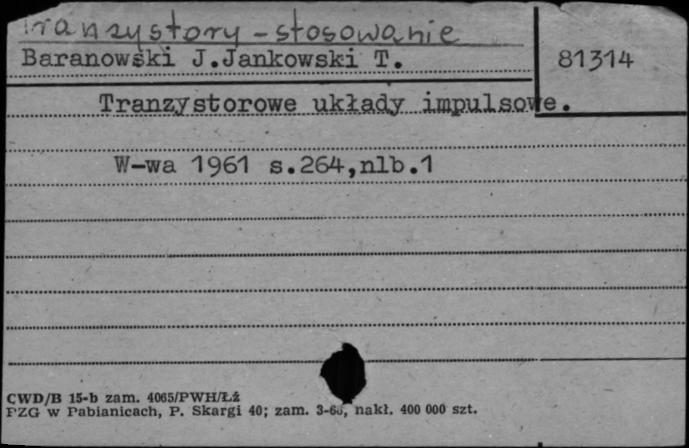 Tranzystory - stosowanie
Baranowski J.Jankowski T. 81314
Tranzystorowe układy impulsowe.
W-wa 1961 s.264,nlb.1
CWD/B 15-b zam. 4065/PWH/Łź
PZG w Pabianicach, P. Skargi 40; zam. nakł. 400 000 szt.